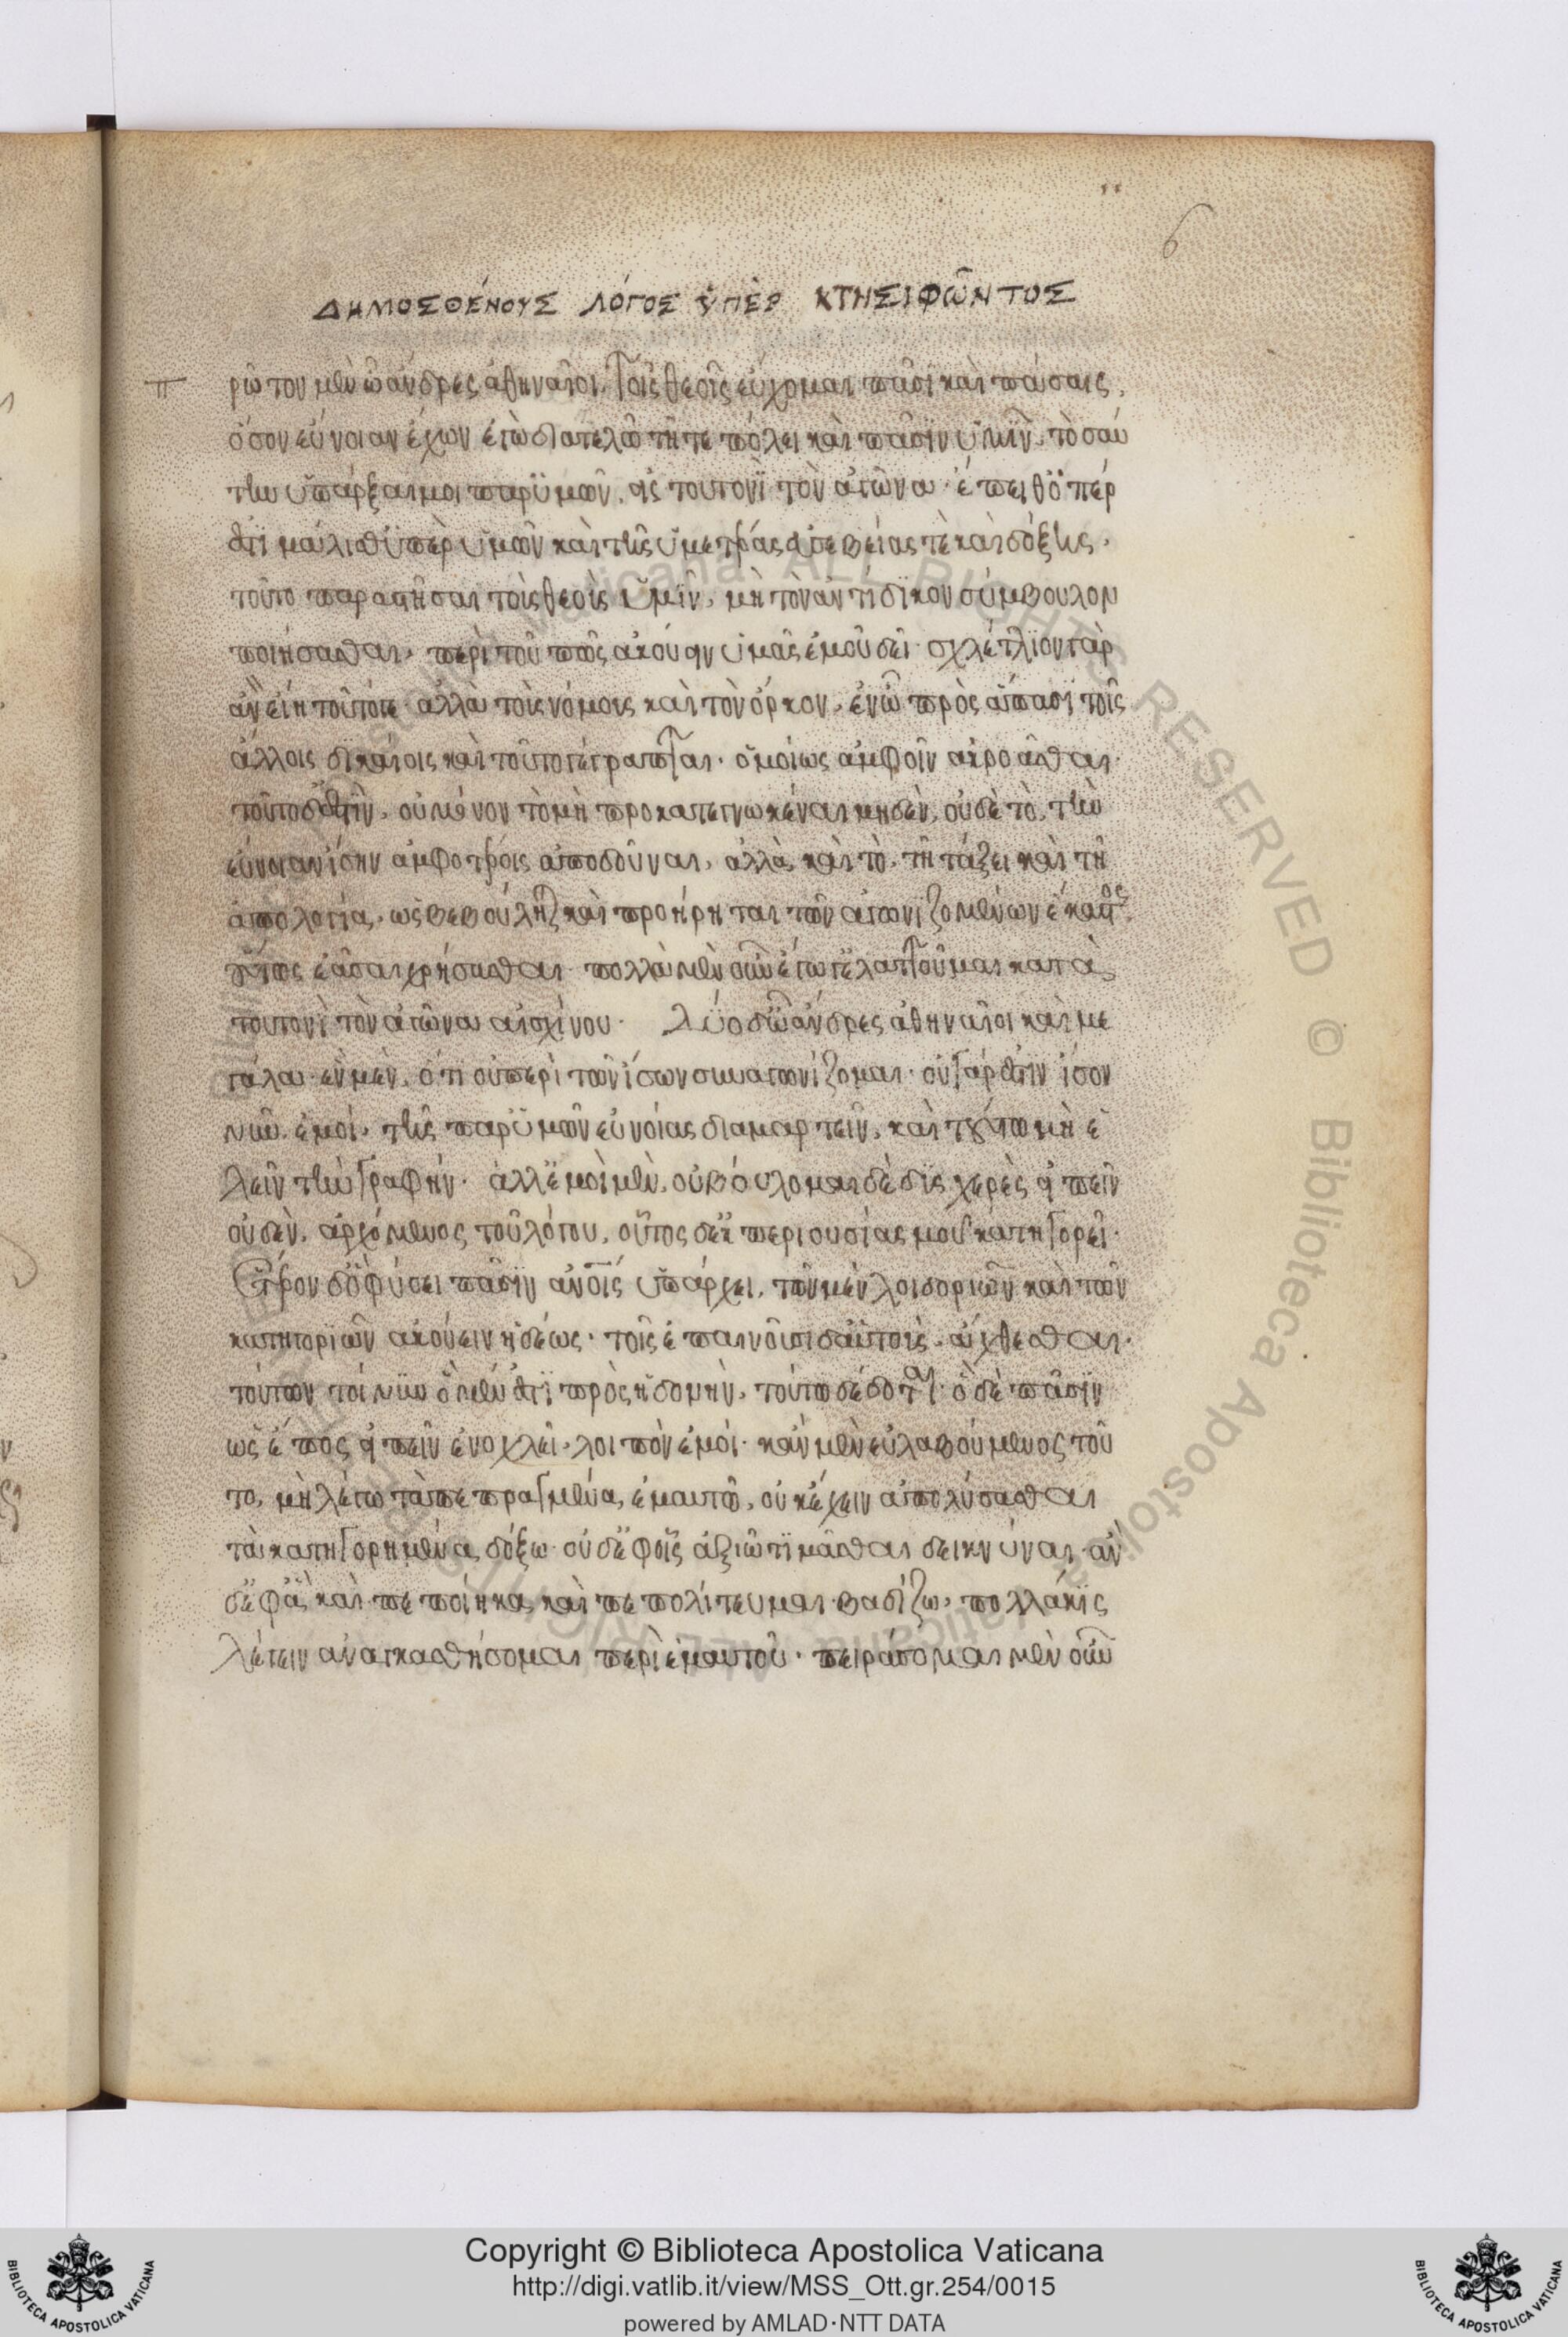 6
ΔΗΜΟΣΘΈΝΟΥΣ ΛΌΓΟΣ ὙΠῈΡ ΚΤΗΣΙΦΩ͂ΝΤΟΣ
π ρῶτον μὲν ὦ ἄνδρες ἀθηναῖοι, τοῖς θεοῖς εὔχομαι πᾶσι καὶ πάσαις,
ὅσον εὔνοιαν ἔχων ἐγὼ διατελῶ τῆ τε πόλει καὶ πᾶσιν ὑμῖν, τοσαύ
την ὑπάρξαι μοι παρ' ὑμῶν, εἰς τουτονὶ τὸν ἀγῶνα· ἔπειθ' ὅπέρ
ἐστι μάλισθ' ὑπὲρ ὑμῶν καὶ τῆς ὑμετέρας εὐσεβείας τὲ καὶ δόξης,
τοῦτο παραστῆσαι τοὺς θεοὺς ὑμῖν, μὴ τὸν ἀντίδικον σύμβουλον
ποιήσασθαι, περὶ τοῦ πῶς ἀκούειν ὑμᾶς ἐμοῦ δεῖ· σχέτλιον γὰρ
ἂν εἴη τοῦτό γε· ἀλλὰ τοὺς νόμους καὶ τὸν ὅρκον, ἐν ὧ πρὸς ἅπασι τοῖς
ἄλλοις δικαίοις καὶ τοῦτο γέγραπται, ὁμοίως ἀμφοῖν ἀκροᾶσθαι·
τοῦτο δ' ἐστὶν, οὐ μόνον τὸ μὴ προκατεγνωκέναι μηδὲν, οὐδὲ τὸ, τὴν
εὔνοιαν ἴσην ἀμφοτέροις ἀποδοῦναι, ἀλλὰ καὶ τὸ, τῆ τάξει καὶ τῆ
ἀπολογία, ὡς βεβούληται καὶ προήρηται τῶν ἀγωνιζομένων ἕκαστος,
οὕτως ἐᾶσαι χρήσασθαι· πολλὰ μὲν οὖν ἔγωγ' ἐλαττοῦμαι κατὰ
τουτονὶ τὸν ἀγῶνα αἰσχίνου· δύο δ' ὦ ἄνδρες ἀθηναῖοι καὶ με
γάλα· ἓν μὲν, ὅτι οὐ περὶ τῶν ἴσων συναγωνίζομαι· οὐ γάρ ἐστιν ἴσον
νῦν ἐμοὶ, τῆς παρ' ὑμῶν εὐνοίας διαμαρτεῖν, καὶ τούτω μὴ ἑ
λεῖν τὴν γραφήν· ἀλλ' ἐμοὶ μὲν, οὐ βούλομαι δὲ δυσχερὲς εἰπεῖν
οὐδὲν, ἀρχόμενος τοῦ λόγου, οὗτος δ' ἐκ περιουσίας μου κατηγορεῖ·
ἕτερον δ' ὃ φύσει πᾶσιν ἀνοις ὑπάρχει, τῶν μὲν λοιδοριῶν καὶ τῶν
κατηγοριῶν ἀκούειν ἡδέως· τοῖς ἐπαινοῦσι δ' αὑτοὺς, ἄχθεσθαι·
τούτων τοίνυν ὃ μέν ἐστι πρὸς ἡδονὴν, τούτω δέδοται· ὃ δὲ πᾶσιν
ὡς ἔπος εἰπεῖν ἐνοχλεῖ, λοιπὸν ἐμοί· κἂν μὲν εὐλαβούμενος τοῦ
το, μὴ λέγω τὰ πεπραγμένα ἐμαυτῶ, οὐκ ἔχειν ἀπολύσασθαι
τὰ κατηγορημένα δόξω· οὐδ' ἐφ' οἷς ἀξιῶ τιμᾶσθαι δεικνύναι· ἂν
δ' ἐφ' ἃ καὶ πεποίηκα καὶ πεπολίτευμαι βαδίζω, πολλάκις
λέγειν ἀναγκασθήσομαι περὶ ἐμαυτοῦ· πειράσομαι μὲν οὖν
Copyright © Biblioteca Apostolica Vaticana
http://digi.vatlib.it/view/MSS_Ott.gr.254/0015
powered by AMLAD·NTT DATA